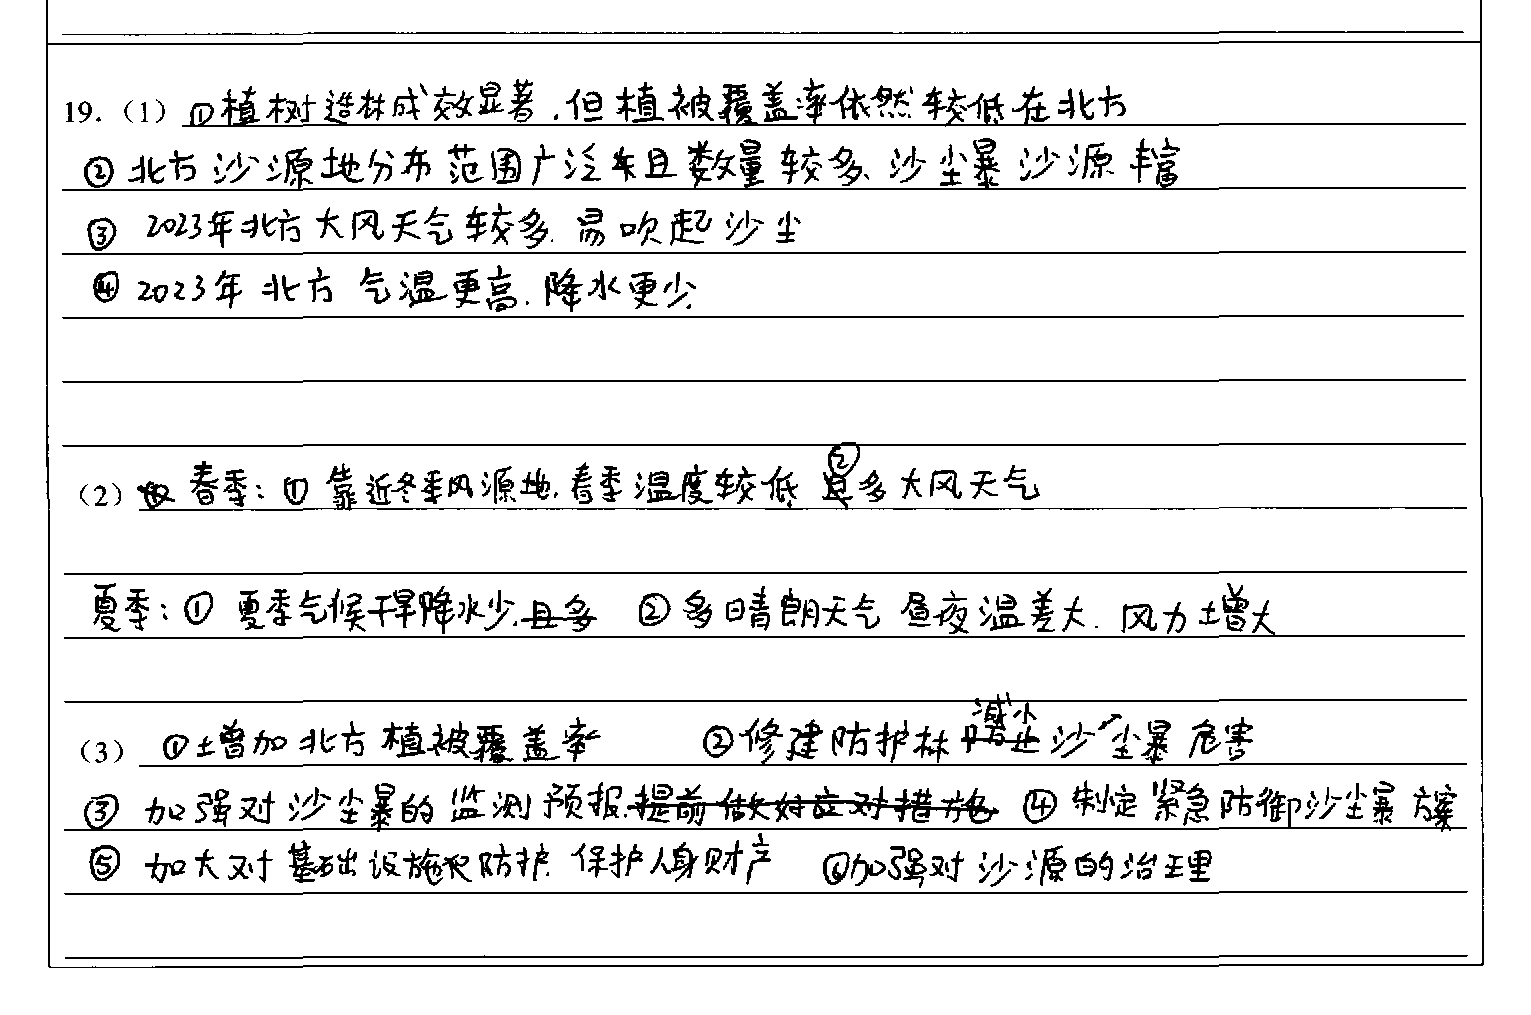 19.（1）①植树造林成效显著，但植被覆盖率依然较低在北方
②北方沙源地分布范围广泛且数量较多、沙尘暴沙源丰富
③ 2023年北方大风天气较多，易吹起沙尘
④ 2023年北方气温更高，降水更少
（2）春季：① 靠近冬季风源地，春季温度较低 ②多大风天气
夏季：① 夏季气候干旱降水少，且多 ②多晴朗天气 昼夜温差大，风力增大
（3）①增加北方植被覆盖率 ②修建防护林减少沙尘暴危害
③ 加强对沙尘暴的监测预报，提前做好应对措施 ④ 制定紧急防御沙尘暴方案
⑤ 加大对基础设施的防护，保护人身财产 ⑥加强对沙源的治理